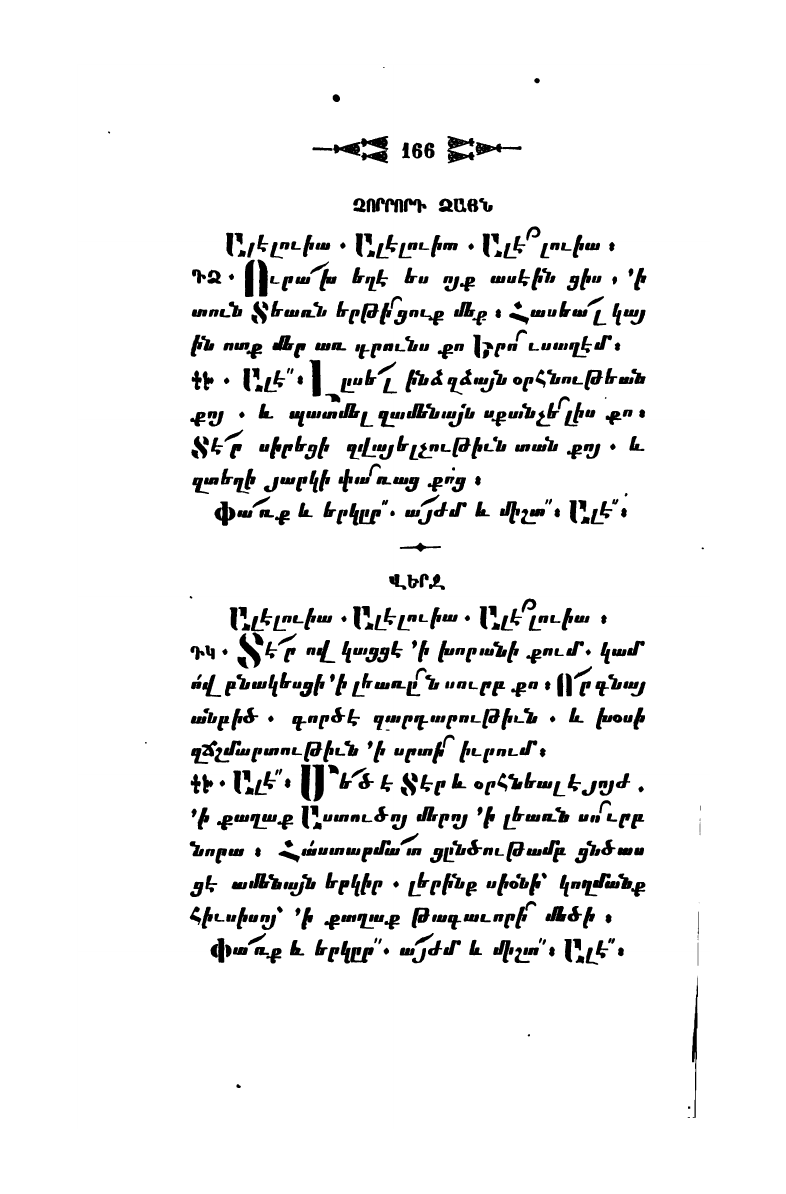 166
ՉՈՐՐՈՐԴ ՁԱՅՆ
Ալէլուիա ․ Ալէլուիա ․ Ալէ՞լուիա ։
ԴՁ ․ Ուրա՛խ եղէ ես ոյք ասէին ցիս , ՚ի
տուն Տեառն երթի՞ցուք մեք ։ Հասեա՛լ կայ
ին ոտք մեր առ դրունս քո Երո՞ւսաղէմ ։
ՓԽ ․ Ալէ՟ ։ Լըսե՛լ ինձ զձայն օրհնութեան
քոյ ․ և պատմել զամենայն սքանչե՞լիս քո ։
Տէ՛ր սիրեցի զվայելչութիւն տան քոյ ․ և
զտեղի յարկի փա՞ռաց քոց ։
Փա՛ռք և երկըր՟ ․ ա՛յժմ և միշտ՟ ։ Ալէ՟ ։
ՎԵՐՋ
Ալէլուիա ․ Ալէլուիա ․ Ալէ՞լուիա ։
ԴԿ ․ Տէ՛ր ով կացցէ ՚ի խորանի քում ․ կամ
ո՛վ բնակեսցի ՚ի լեառը՞ն սուրբ քո ։ Ո՛ր գնայ
անբիծ ․ գործէ զարդարութիւն ․ և խօսի
զճշմարտութիւն ՚ի սրտի՞ իւրում ։
ՓԽ ․ Ալէ՟ ։ Մե՛ծ է Տէր և օրհնեալ է յոյժ ,
՚ի քաղաք Աստուծոյ մերոյ ՚ի լեառն սո՞ւրբ
նորա ։ Հաստարմա՛տ ցընծութամբ ցնծաս
ցէ ամենայն երկիր ․ լերինք սիօնի՝ կողմանք
հիւսիսոյ՝ ՚ի քաղաք թագաւորի՞ մեծի ։
Փա՛ռք և երկըր՟ ․ ա՛յժմ և միշտ՟ ։ Ալէ՟ ։